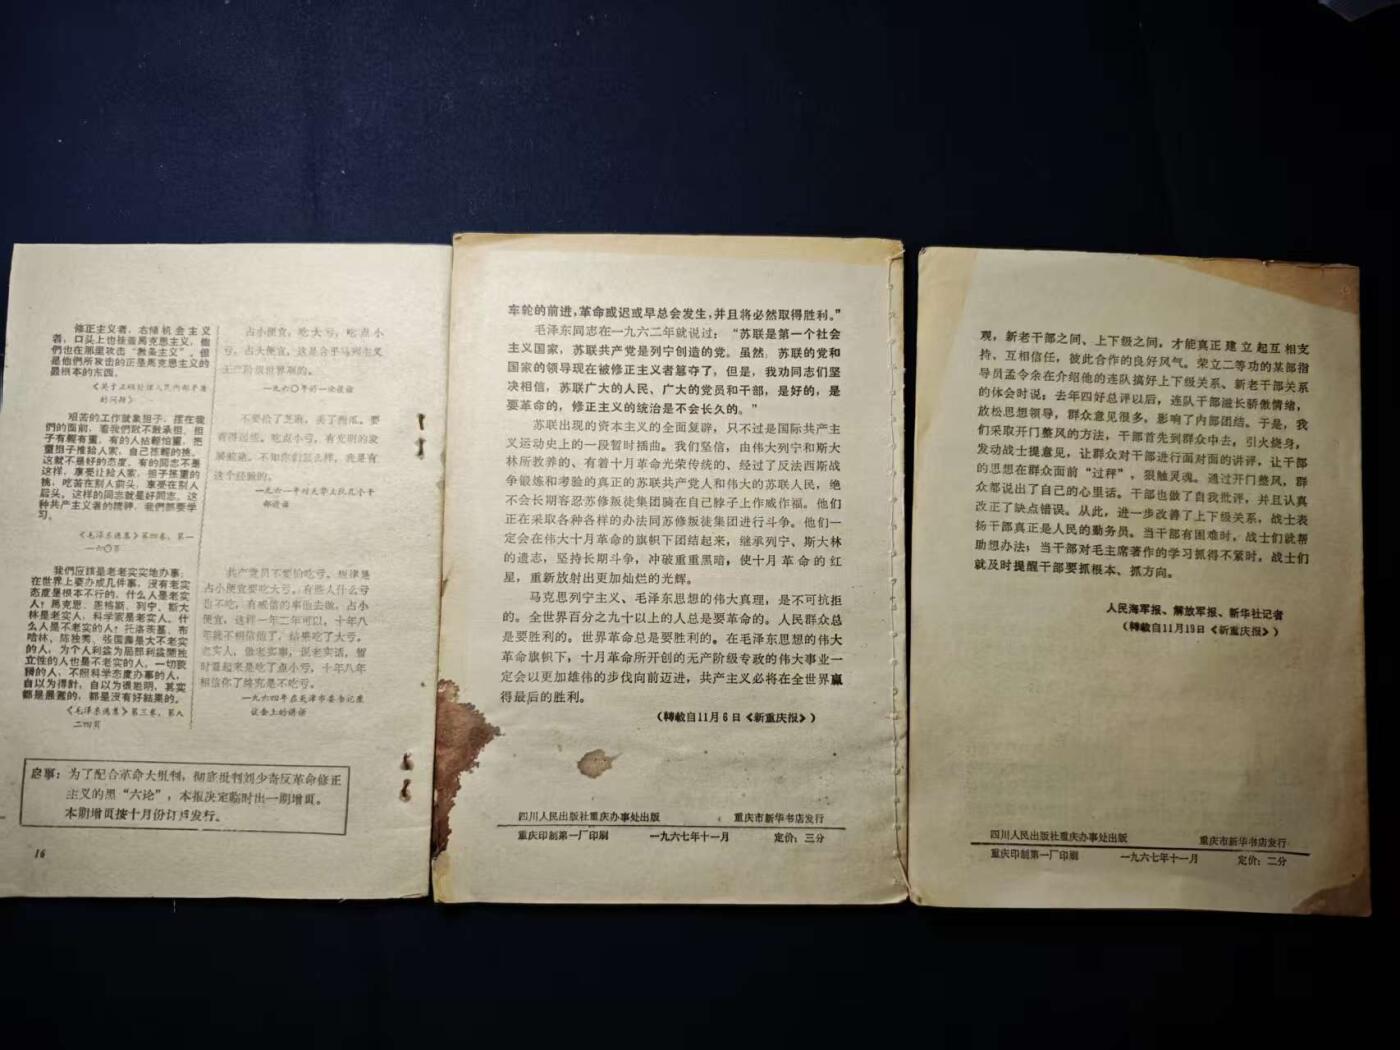 修正主义者，右倾机会主义
者，口头上也挂着马克思主义，他
们也在那里攻击“教条主义”。但
是他們所攻击的正是馬克思主义的
最根本的东西。
《关于正确处理人民内部矛盾
的问题》
艰苦的工作就象担子，摆在我
們的面前，看我們敢不敢承担。担
子有輕有重。有的人拈輕怕重，把
重担子推給人家，自己拣輕的挑。
这就不是好的态度。有的同志不是
这样，享受让給人家，担子拣重的
挑，吃苦在别人前头，享受在别人
后头。这样的同志就是好同志。这
种共产主义者的精神，我們都要学
习。
《毛泽东选集》第四卷，第一
一六〇页
我們应該是老老实实地办事；
在世界上要办成几件事，沒有老实
态度是根本不行的。什么人是老实
人？馬克思、恩格斯、列宁、斯大
林是老实人，科学家是老实人。什
么人是不老实的人？托洛茨基、布
哈林、陈独秀、张国燾是大不老实
的人，为个人利益为局部利益鬧独
立性的人也是不老实的人。一切狡
猾的人，不照科学态度办事的人，
自以为得計，自以为很聪明，其实
都是最蠢的，都是沒有好結果的。
《毛泽东选集》第三卷，第八
二四页
占小便宜，吃大亏，吃点小
亏，占大便宜，这是合乎马列主义
无产阶级世界观的。
一九六〇年的一次谈话
不要捡了芝麻，丢了西瓜。要
个经验的。
占小便宜要吃大亏。有些人什么亏
也不吃，有威信的事他去做，占小
便宜，这样一年二年可以，十年八
年就不相信他了，结果吃了大亏。
老实人，做老实事，说老实话，暂
时看起来是吃了点小亏，十年八年
相信你了终究是不吃亏。
一九六四年在天津市委书记座
谈会上的讲话
启事：为了配合革命大批判，彻底批判刘少奇反革命修正
主义的黑“六论”，本报决定临时出一期增页。
本期增页按十月份订户发行。
16
车轮的前进，革命或迟或早总会发生，并且将必然取得胜利。”
毛泽东同志在一九六二年就说过：“苏联是第一个社会
主义国家，苏联共产党是列宁创造的党。虽然，苏联的党和
国家的领导现在被修正主义者篡夺了，但是，我劝同志们坚
决相信，苏联广大的人民、广大的党员和干部，是好的，是
要革命的，修正主义的统治是不会长久的。”
苏联出现的资本主义的全面复辟，只不过是国际共产主
义运动史上的一段暂时插曲。我们坚信，由伟大列宁和斯大
林所教养的、有着十月革命光荣传统的、经过了反法西斯战
争锻炼和考验的真正的苏联共产党人和伟大的苏联人民，绝
不会长期容忍苏修叛徒集团骑在自己脖子上作威作福。他们
正在采取各种各样的办法同苏修叛徒集团进行斗争。他们一
定会在伟大十月革命的旗帜下团结起来，继承列宁、斯大林
的遗志，坚持长期斗争，冲破重重黑暗，使十月革命的红
星，重新放射出更加灿烂的光辉。
马克思列宁主义、毛泽东思想的伟大真理，是不可抗拒
的。全世界百分之九十以上的人总是要革命的。人民群众总
是要胜利的。世界革命总是要胜利的。在毛泽东思想的伟大
革命旗帜下，十月革命所开创的无产阶级专政的伟大事业一
定会以更加雄伟的步伐向前迈进，共产主义必将在全世界赢
得最后的胜利。
（轉載自11月6日《新重庆报》）
四川人民出版社重庆办事处出版 重庆市新华书店发行
重庆印制第一厂印刷 一九六七年十一月 定价：三分
观，新老干部之间、上下级之间，才能真正建立起互相支
持、互相信任，彼此合作的良好风气。荣立二等功的某部指
导员孟令余在介绍他的连队搞好上下级关系、新老干部关系
的体会时说：去年四好总评以后，连队干部滋长骄傲情绪，
放松思想领导，群众意见很多，影响了内部团结。于是，我
们采取开门整风的方法，干部首先到群众中去，引火烧身，
发动战士提意见，让群众对干部进行面对面的讲评，让干部
的思想在群众面前“过秤”，狠触灵魂。通过开门整风，群
众都说出了自己的心里话。干部也做了自我批评，并且认真
改正了缺点错误。从此，进一步改善了上下级关系，战士表
扬干部真正是人民的勤务员。当干部有困难时，战士们就帮
助想办法；当干部对毛主席著作的学习抓得不紧时，战士们
就及时提醒干部要抓根本、抓方向。
人民海军报、解放军报、新华社记者
（轉載自11月19日《新重庆报》）
四川人民出版社重庆办事处出版 重庆市新华书店发行
重庆印制第一厂印刷 一九六七年十一月 定价：二分